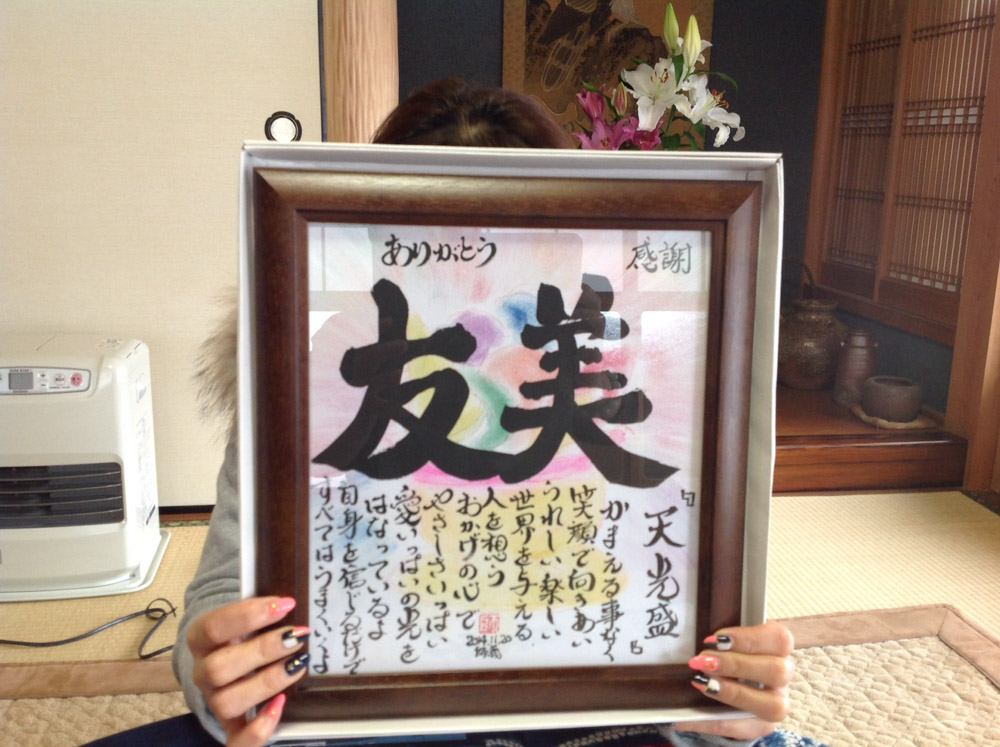 ありがとう
感謝
友美
『天光盛』
かまえる事なく
笑顔で向きあい
うれしい楽しい
世界を与える
人を想う
おかげの心で
やさしさいっぱい
愛いっぱいの光を
はなっているよ
自身を信じるだけで
すべてはうまくいくよ
2014.11.20